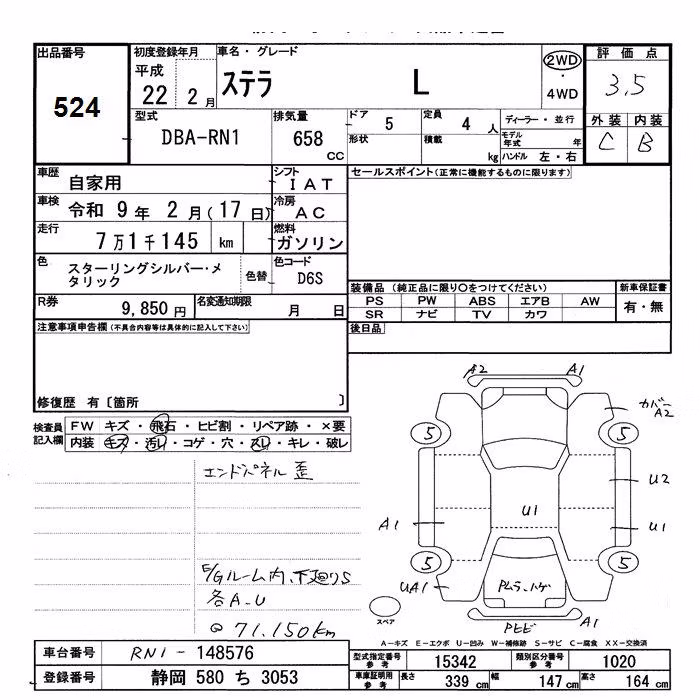 出品番号
524
初度登録年月
平成
22 2 月
車名・グレード
ステラ L
2WD
・
4WD
評価点
3.5
外装 内装
C B
型式
DBA-RN1
排気量
658
CC
ドア
5
定員
4 人
形状
積載
kg
ディーラー・並行
モデル
年式 年
ハンドル 左・右
車歴
自家用
シフト
I A T
車検
令和 9 年 2 月 (17 日)
冷房
A C
走行
7 万 1 千 145 km
燃料
ガソリン
色
スターリングシルバー・メ
タリック
色替
色コード
D6S
R券
9,850 円
名変通知期限
月 日
セールスポイント(正常に機能するものに限ります)
装備品 (純正品に限り○をつけてください)
新車保証書
PS PW ABS エアB AW
有・無
SR ナビ TV カワ
後日品
注意事項申告欄 (不具合内容等は具体的に記入して下さい)
修復歴 有〔箇所 〕
検査員
記入欄
FW キズ・飛石・ヒビ割・リペア跡・×要
内装 キズ・汚レ・コゲ・穴・スレ・キレ・破レ
エンドパネル 歪
E/Gルーム内、下廻りS
各A.U
@ 71.150km
A2 A1
カバー
A2
5 5
U2
U1
A1
U1
5 5
UA1
Pムラ・ハゲ
A1
PヒビA1
スペア
A-キズ E-エクボ U-凹み W-補修跡 S-サビ C-腐食 XX-交換済
車台番号
RN1 - 148576
登録番号
静岡 580 ち 3053
型式指定番号
参考
15342
類別区分番号
参考
1020
車庫証明用
参考
長さ
339 cm
幅
147 cm
高さ
164 cm